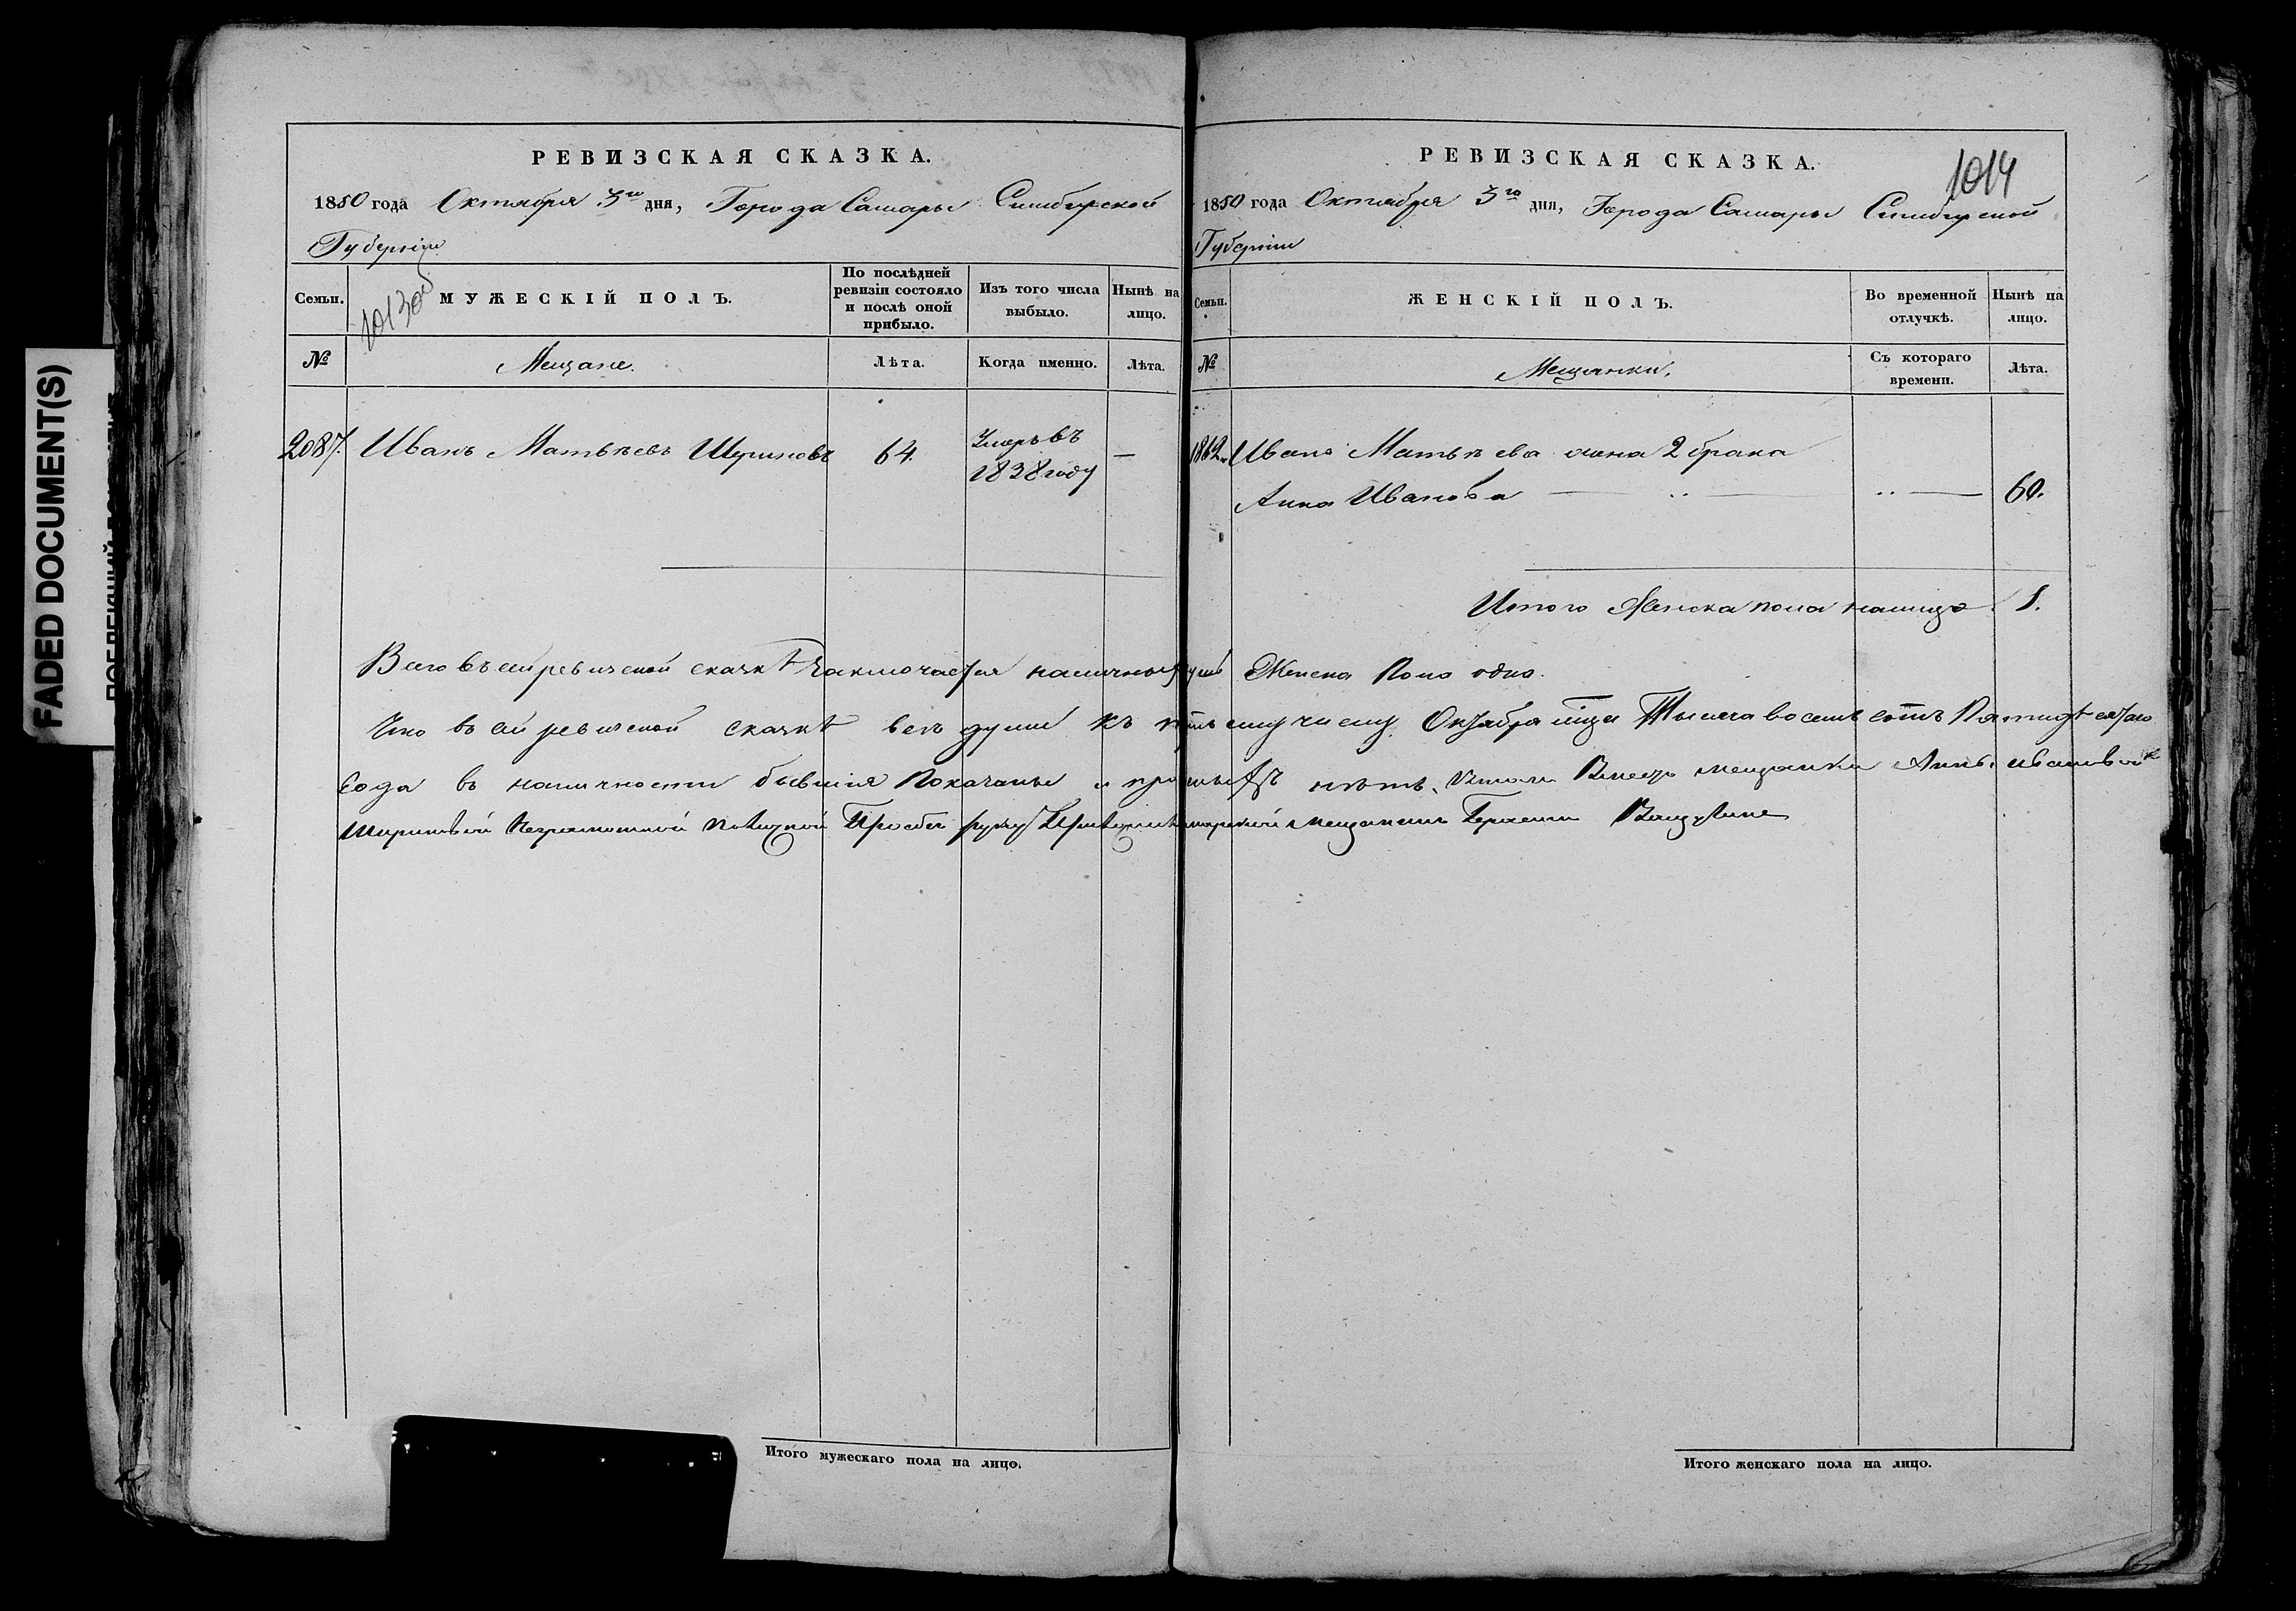 FADED DOCUMENT(S)
РЕВИЗСКАЯ СКАЗКА.
1850 года Октября 3го дня, Города Самары Симбирской
Губерніи
1013 об
Семьи. МУЖЕСКІЙ ПОЛЪ. По послѣдней ревизіи состояло и послѣ оной прибыло. Изъ того числа выбыло. Нынѣ на лицо.
№ Мещане. Лѣта. Когда именно. Лѣта.
2087. Иванъ Матвѣевъ Шуриновъ 64. Умеръ въ 1838 году —
РЕВИЗСКАЯ СКАЗКА.
1014
1850 года Октября 3го дня, Города Самары Симбирской
Губерніи
Семьи. ЖЕНСКІЙ ПОЛЪ. Во временной отлучкѣ. Нынѣ на лицо.
№ Мещанки. Съ котораго времени. Лѣта.
1862. Ивана Матвѣева жена 2 брака
Анна Иванова — „ — „ — 60.
Итого Женска пола налицо 1.
Всего въ сей ревизской сказкѣ заключается наличных душъ Женска Пола одна.
Что въ сей ревизской сказкѣ всѣ души къ Октября мца Тысяча восемь сотъ Пятидесятаго
года въ наличности бывшія Показаны и нѣтъ, Вместо мещанки Анны Ивановой
Шуриновой Неграмотной По Личной Просбе руку мещанинъ
Итого мужескаго пола на лицо.
Итого женскаго пола на лицо.